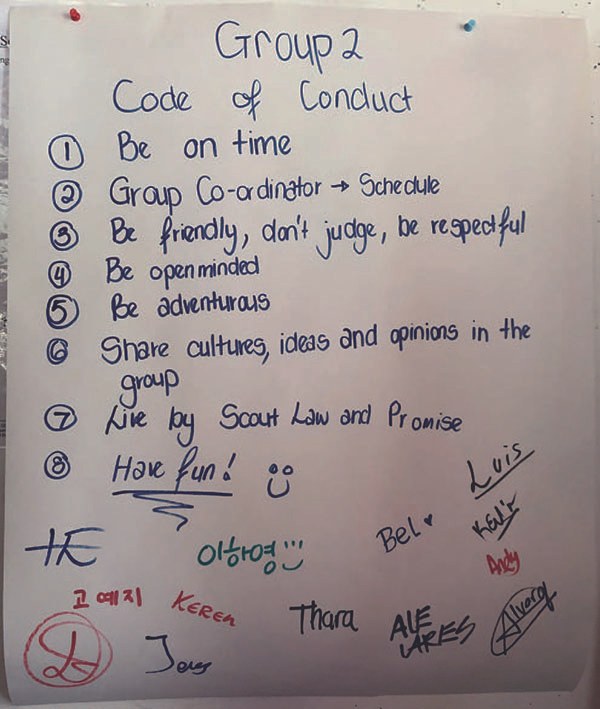 Group 2
Code of Conduct
① Be on time
② Group Co-ordinator → Schedule
③ Be friendly, don't judge, be respectful
④ Be openminded
⑤ Be adventurous
⑥ Share cultures, ideas and opinions in the
group
⑦ Live by Scout Law and Promise
⑧ Have fun!
Luis
Bel
Andy
이하영
고예지
KEREN
Thara
ALE
LARES